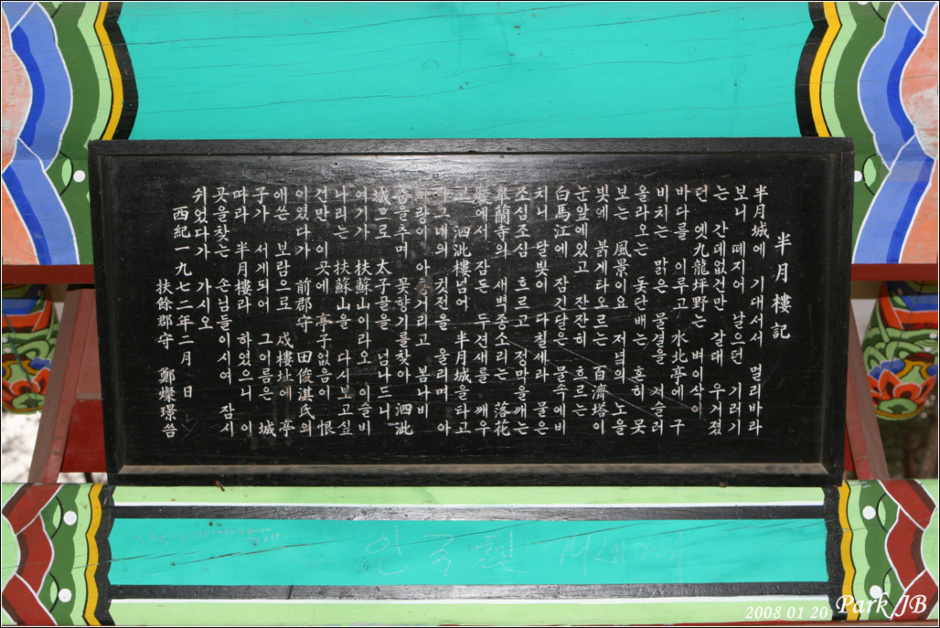 半月樓記
半月城에 기대서서 멀리바라
보니 떼지어 날으던 기러기
는 간데없건만 갈대 우거졌
던 옛九龍坪野는 벼이삭이
바다를 이루고 水北亭에 구
비치는 맑은 물결을 저슬러
올라오는 돛단배는 흔히 못
보는 風景이요 저녁의 노을
빛에 붉게타오르는 百濟塔이
눈앞에있고 잔잔히 흐르는
白馬江에 잠긴달은 물속에비
치니 달빛이 다칠세라 물은
조심조심 흐르고 정막을깨는
皐蘭寺의 새벽종소리는 落花
巖에서 잠든 두견새를 깨우
고 泗沘樓넘어 半月城을타고
나그네의 귓전을 울리며 아
지랑이 아롱거리고 봄나비
춤을추며 꽃향기를찾아 泗沘
城으로 太子골을 넘나드니
여기가 扶蘇山이라오 이슬비
나리는 扶蘇山을 다시보고싶
건만 이곳에 亭子없음이 恨
이었다가 前郡守 田俊淇氏의
애쓴 보람으로 戍樓址에 亭
子가 서게되어 그이름은 城
따라 半月樓라 하였으니 이
곳을찾는 손님들이시여 잠시
쉬었다가 가시오
西紀一九七二年二月 日
扶餘郡守 鄭燦璟씀
안국현
2008 01 20 Park JB